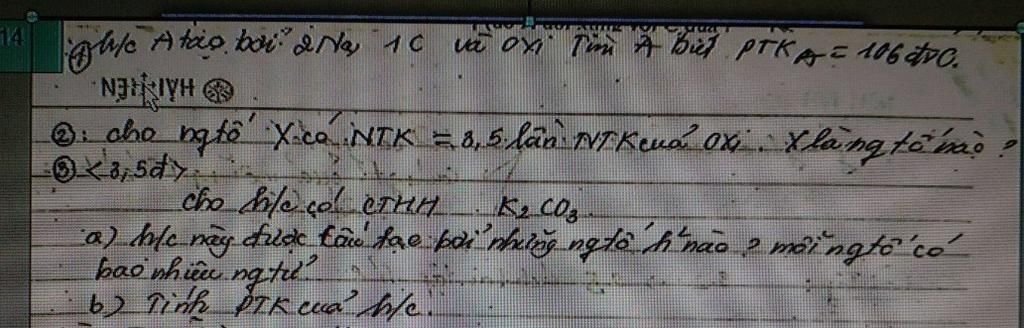 14
① h/c A tạo bởi 2Na, 1C và oxi Tìm A biết PTK A = 106 đvC.
HẢI TIẾN
②: cho ngtố X có NTK = 3,5 lần NTK của oxi. X là ngtố nào?
③ <3,5đ>
cho h/c có CTHH K2CO3.
a) h/c này được cấu tạo bởi những ngtố h² nào? mỗi ngtố có
bao nhiêu ngtử?
b) Tính PTK của h/c.